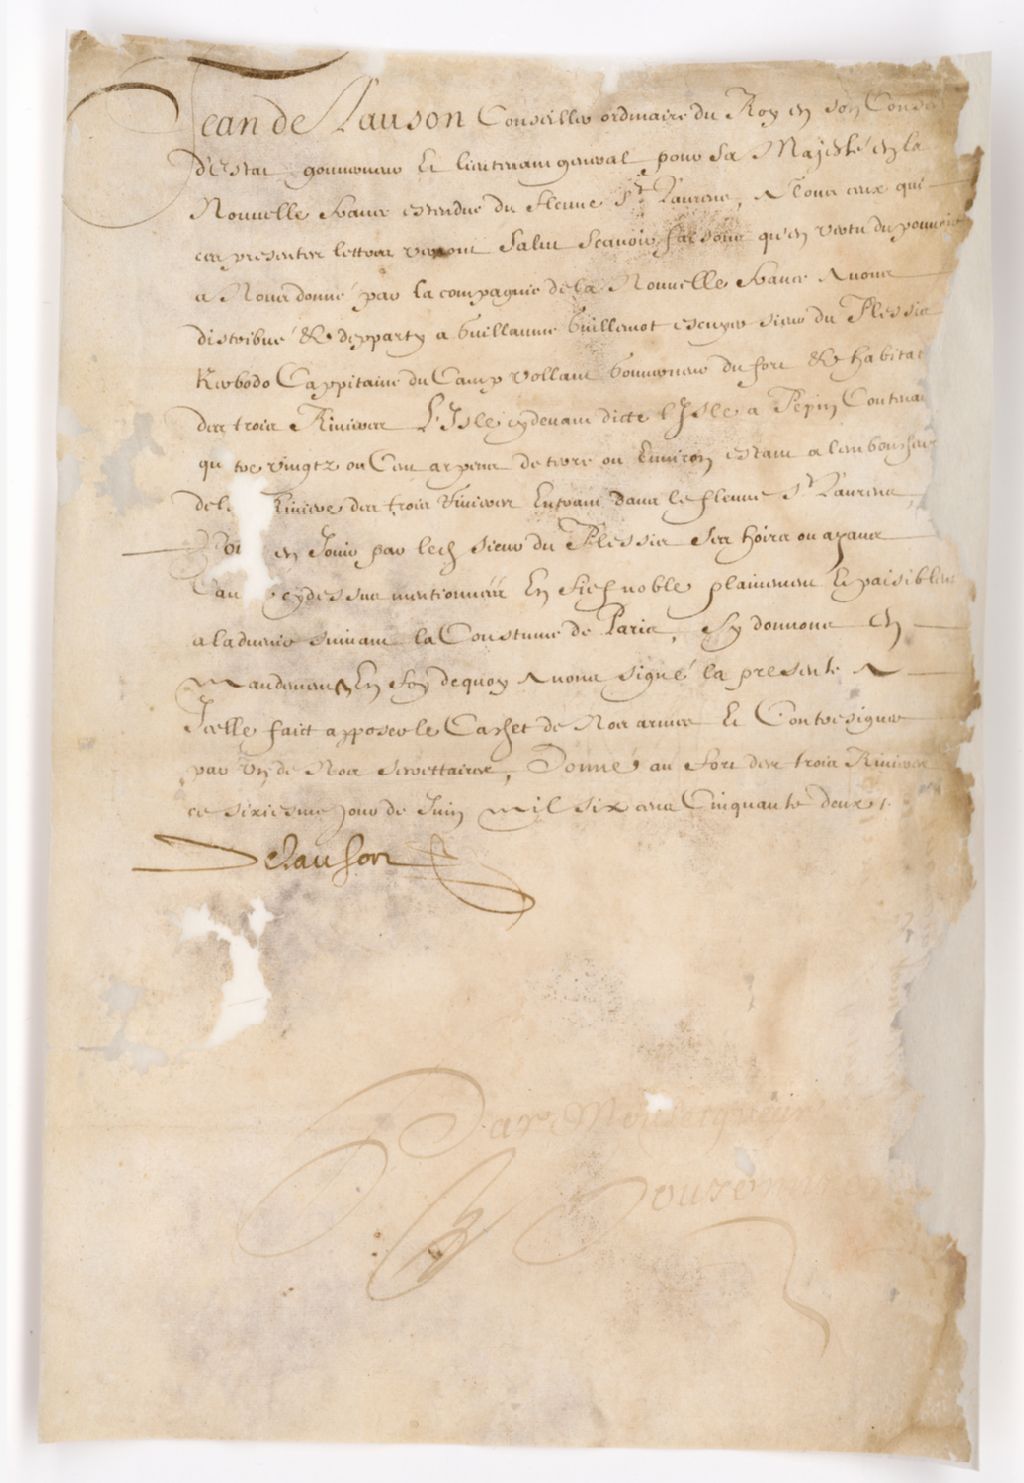 Jean de Lauson Conseiller ordinaire du Roy en son Conse
d'Estat gouverneur et lieutenant general pour Sa Majesté en la
Nouuelle France estendue du fleuue St Laurens, A Tous ceux qui
ces presentes lettres verront Salut Scauoir faisons qu'en vertu du pouuoir
a Nous donné par la compagnie de la Nouuelle France Auons
distribué & departy a Guillaume Guillemot escuyer sieur du Plessis
Kerbodo Cappitaine du Camp vollant Gouuerneur du fort & habitat
des trois Riuieres L'Isle cydeuant dicte l'Isle a Pepin Contenan
qu tre vingtz ou Cent arpens de terre ou Enuiron estant a lembouscheur
de l Riuiere des trois Riuieres Entrant dans le fleuue St Laurens,
Pou en Jouir par led sieur du Plessis Ses hoirs ou ayans
Cau cydessus mentionnéé En fief noble plainement et paisiblem
a laduenir suiuant la Coustume de Paris, Sy donnons En
Mandement En foy dequoy Auons signé la presente A
Icelle faict apposer le Cachet de Nos armes Et Contresigner
par Un de Nos Secrettaires, Donné au fort des trois Riuieres
ce sixiesme jour de Juin Mil six cens Cinquante deux
Delauson
Par Monseigneur
Rouer